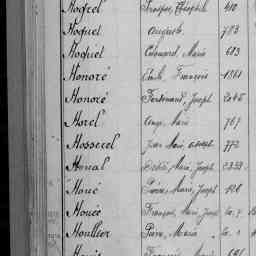 Hogrel Prosper, Théophile 410
Hoguet Auguste 783
Hoguet Edouard, Marie 683
Honoré Emile, François 1861
Honoré Ferdinand, Joseph 2045
Horel Ange, Marie 767
Hosserel Jean Marie, 772
Houal Marie, Joseph
Houé Pierre, Marie, Joseph 120
Houée François, Marie, Joseph
Houllier Pierre, Marie
François, Marie